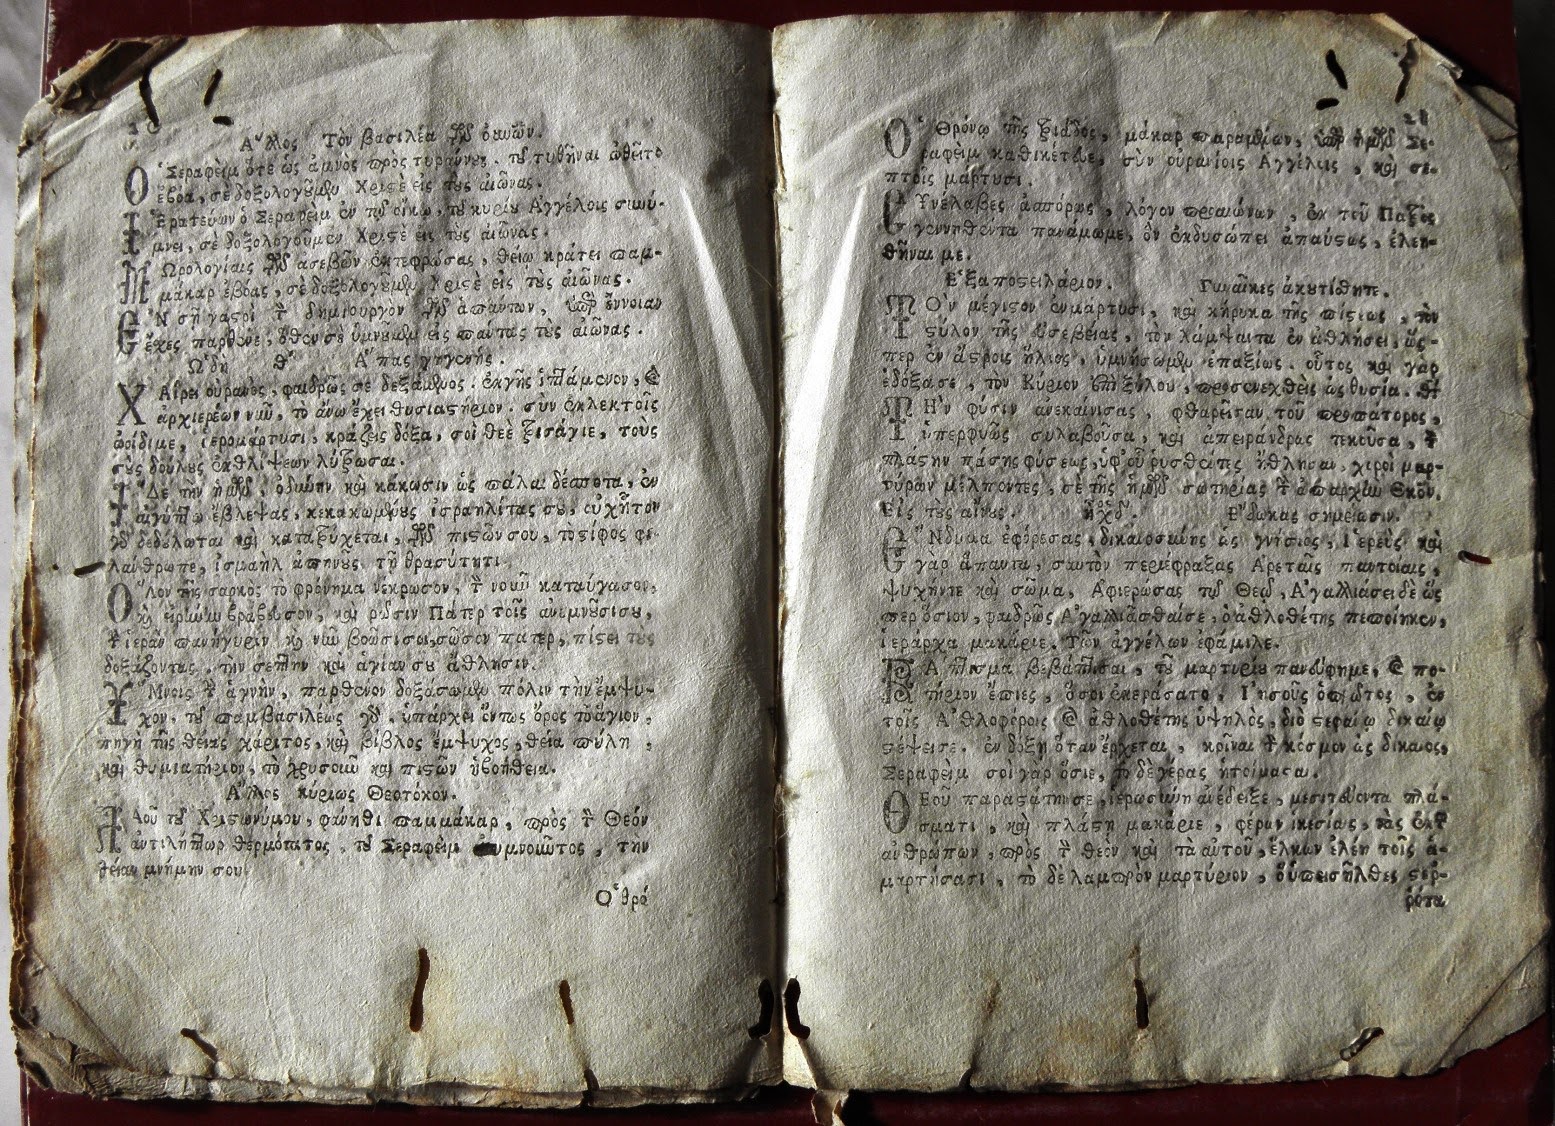 Ἄλλος Τὸν βασιλέα τῶν οὐνῶν.
Ὁ Σεραφεὶμ ὅτε ὡς ἀμνὸς πρὸς τυράννου. τοῦ τυθῆναι ὠθεῖτο
ἐβόα, σὲ δοξολογοῦμεν Χριστὲ εἰς τοὺς αἰῶνας.
Ἱερατεύων ὁ Σεραφεὶμ ἐν τῷ οἴκῳ, τοῦ κυρίου Ἀγγέλοις συνύ-
μνει, σὲ δοξολογοῦμεν Χριστὲ εἰς τοὺς αἰῶνας.
Μωρολογίαις τῶν ἀσεβῶν ἐκτεφρώσας, θείῳ κράτει παμ-
μάκαρ ἐβόας, σὲ δοξολογοῦμεν Χριστὲ εἰς τοὺς αἰῶνας.
Ἐν σῇ γαστρὶ τὸν δημιουργὸν τῶν ἁπάντων, ὑπὲρ ἔννοιαν
ἔχες παρθένε, ὅθεν σὲ ὑμνοῦμεν εἰς πάντας τοὺς αἰῶνας.
Ὠδὴ θ΄ Ἅπας γηγενής.
Χαίρει οὐρανὸς, φαιδρῶς σὲ δεξάμενος. ἐκ γῆς ἱπτάμενον, καὶ
ἀρχιερέων νῦν, τὸ ἄνω ἔχει θυσιαστήριον. σὺν ἐκλεκτοῖς
ἀοίδιμε, ἱερομάρτυσι, κράζεις δόξα, σοὶ θεὲ τρισάγιε, τοὺς
σοὺς δούλους ἐκ θλίψεων λύτρωσαι.
Ἴδε τὴν ἡμῶν, ὀδύνην καὶ κάκωσιν ὡς πάλαι δέσποτα, ἐν
αἰγύπτῳ ἔβλεψας, κεκακωμένους ἰσραηλίτας σου, εὐχῆτον
γὰρ δεδούλωται καὶ κατατρύχεται, τῶν πιστῶν σου, τὸ ξίφος φι-
λάνθρωπε, ἰσμαὴλ ἀπηνοῦς τῇ θρασύτητι.
Ὅλον τῆς σαρκὸς τὸ φρόνημα νέκρωσον, τὸν νοῦν καταύγασον,
καὶ εἰρήνην βράβευσον, καὶ ῥῶσιν Πάτερ τοῖς ἀνυμνοῦσί σου,
τὴν ἱερὰν πανήγυριν καὶ νῦν βοῶσί σοι, σῶσον πάτερ, πίστει τοὺς
δοξάζοντας, τὴν σεπτὴν καὶ ἁγίαν σου ἄθλησιν.
Ὕμνοις τὴν ἁγνὴν, παρθένον δοξάσωμεν πόλιν τὴν ἔμψυ-
χον. τοῦ παμβασιλέως γὰρ, ὑπάρχει ὄντως ὄρος τὸ ἅγιον,
πηγὴ τῆς θείας χάριτος, καὶ βίβλος ἔμψυχος, θεία πύλη,
καὶ θυμιατήριον, τὸ χρυσοῦν καὶ πιστῶν ἡ βοήθεια.
Ἄλλος κυρίως Θεοτόκον.
Λαοῦ τοῦ Χριστωνύμου, φάνηθι παμμάκαρ, πρὸς τὸν Θεὸν
ἀντιλήπτωρ θερμότατος, τοῦ Σεραφεὶμ ἀνυμνοῦντος, τὴν
θείαν μνήμην σου
Ὁ θρό
Ὁ Θρόνῳ τῆς τριάδος, μάκαρ παραμένων, ὑπὲρ ἡμῶν Σε-
ραφεὶμ καθικέτευε, σὺν οὐρανίοις Ἀγγέλοις, καὶ σε-
πτοῖς μάρτυσι.
Συνέλαβες ἀσπόρως, λόγον πρὸ αἰώνων, ἐκ τοῦ Πατρὸς
γεννηθέντα πανάμωμε, ὃν ἐκδυσώπει ἀπαύστως, ἐλεη-
θῆναί με.
Ἐξαποστειλάριον. Γυναῖκες ἀκουτίσθητε.
Τὸν μέγιστον ἐν μάρτυσι, καὶ κήρυκα τῆς πίστεως, τὸν
στύλον τῆς εὐσεβείας, τὸν λάμψαντα ἐν ἀθλήσει, ὥς-
περ ἐν ἄστροις ἥλιος, ὑμνήσωμεν ἐπαξίως. οὗτος καὶ γὰρ
ἐδόξασε, τὸν Κύριον ἐπὶ ξύλου, προσενεχθεὶς ὡς θυσία.
Τὴν φύσιν ἀνεκαίνισας, φθαρεῖσαν τοῦ προπάτορος,
ὑπερφυῶς συλλαβοῦσα, καὶ ἀπειράνδρως τεκοῦσα, τὸν
πλάστην πάσης φύσεως, ὑφ' οὗ ῥυσθέντες ἤθλησαν, χοροὶ μαρ-
τύρων μέλποντες, σὲ τῆς ἡμῶν σωτηρίας τὴν ἀπαρχὴν Θεοτόκον.
Εἰς τοὺς αἴνους. ἦχος δ΄. Ἔδωκας σημείωσιν.
Ἔνδυμα ἐφόρεσας, δικαιοσύνης ὡς γνήσιος, Ἱερεὺς καὶ
γὰρ ἅπαντα, σαυτὸν περιέφραξας Ἀρεταῖς παντοίαις,
ψυχήν τε καὶ σῶμα, Ἀφιερώσας τῷ Θεῷ, Ἀγαλλιάσει δὲ ὥς
περ ὅσιον, φαιδρῶς Ἀγαλλιᾶσθαί σε, ὁ ἀθλοθέτης πεποίηκεν,
ἱεράρχα μακάριε, Τῶν ἀγγέλων ἐφάμιλλε.
Βάπτισμα βεβάπτισαι, τοῦ μαρτυρίου πανεύφημε, καὶ πο-
τήριον ἔπιες, ὅσοι ἐκεράσατο, Ἰησοῦς ὁ πρῶτος, ἐν
τοῖς Ἀθλοφόροις καὶ ἀθλοθέτης ὑψηλὸς, διὸ στεφάνῳ δικαίῳ
στέψει σὲ, ἐν δόξῃ ὅταν ἔρχεται, κρῖναι τὸν κόσμον ὡς δίκαιος,
Σεραφεὶμ σοὶ γὰρ ὅσιε, τὸ δὲ γέρας ἡτοίμασται.
Θεοῦ παραστάτην σε, ἱερωσύνη ἀνέδειξε, μεσιτεύοντα πλά-
σματι, καὶ πλάστῃ μακάριε, φέρων ἱκεσίας, τὰς ἐκ τῶν
ἀνθρώπων, πρὸς τὸν θεὸν καὶ τὰ αὐτοῦ, ἕλκων ἐλέη τοῖς ἁ-
μαρτήσασι, τὸ δὲ λαμπρὸν μαρτύριον, οὗπερ εἰσῆλθες στεῤ-
ῥότα